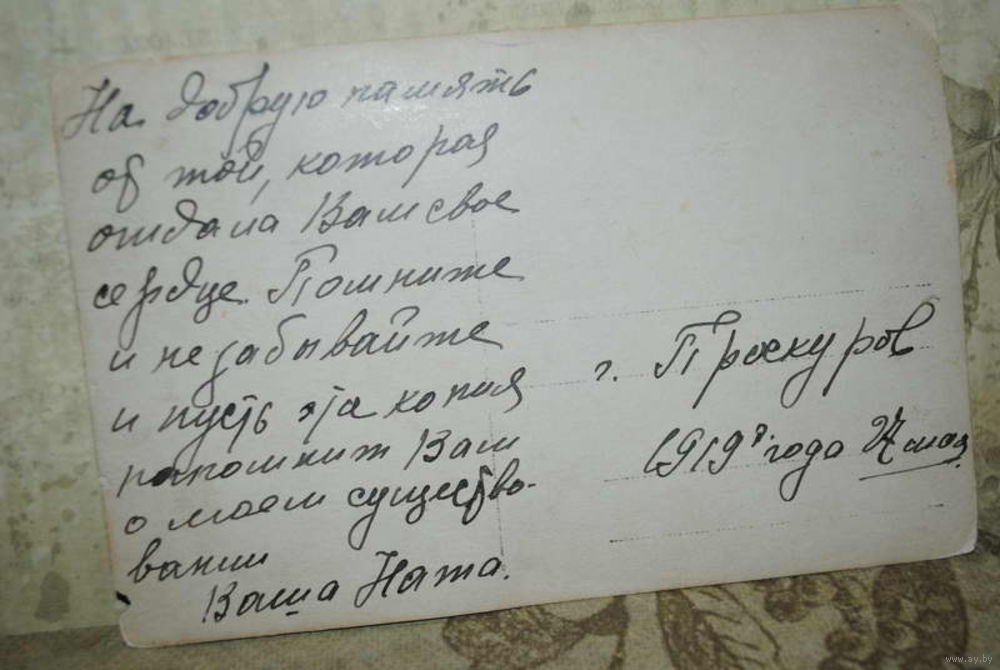 На добрую память
от той, которая
отдала Вам свое
сердце. Помните
и не забывайте
и пусть эта копия
напомнит Вам
о моем существо-
вании
Ваша Ната.
г. Проскуров
1919 г. года 24 мая
www.ay.by